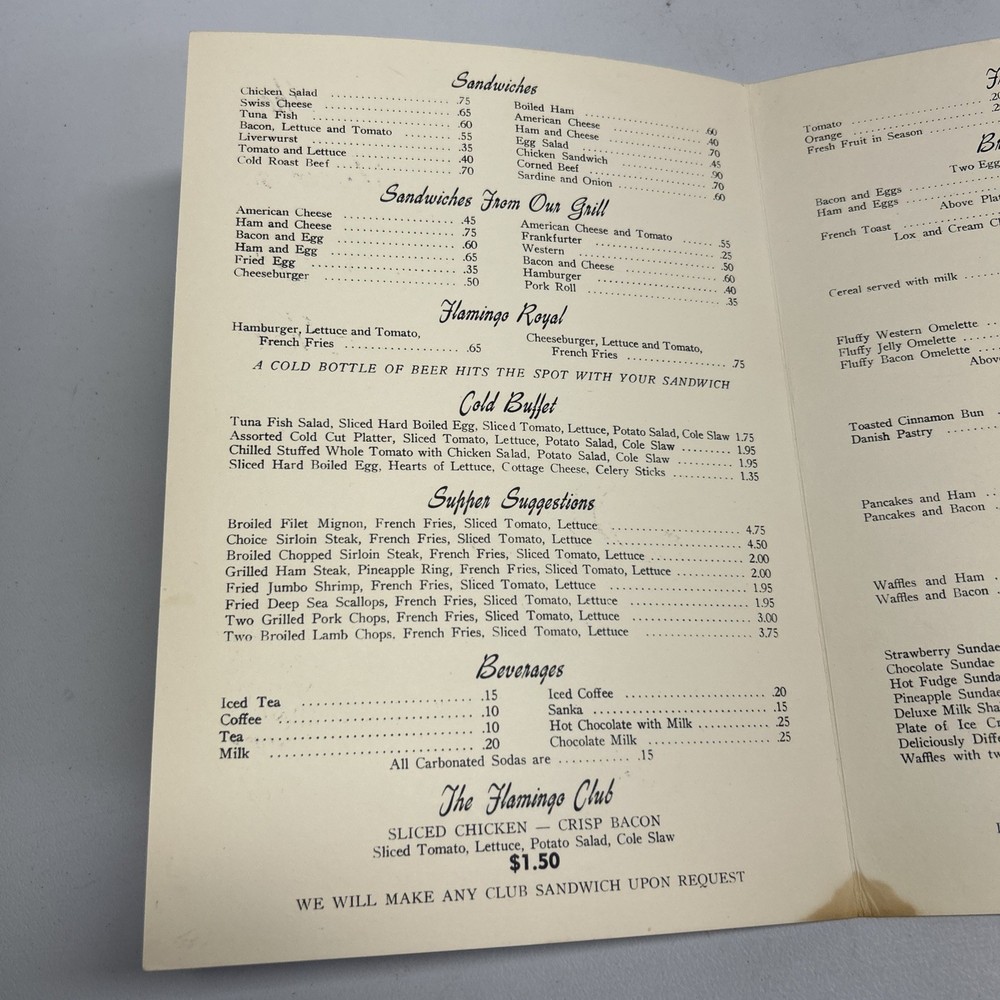 Sandwiches
Chicken Salad .................... .75
Swiss Cheese .................... .65
Tuna Fish .................... .60
Bacon, Lettuce and Tomato .................... .55
Liverwurst .................... .35
Tomato and Lettuce .................... .40
Cold Roast Beef .................... .70
Boiled Ham .................... .60
American Cheese .................... .40
Ham and Cheese .................... .70
Egg Salad .................... .45
Chicken Sandwich .................... .90
Corned Beef .................... .70
Sardine and Onion .................... .60
Sandwiches From Our Grill
American Cheese .................... .45
Ham and Cheese .................... .75
Bacon and Egg .................... .60
Ham and Egg .................... .65
Fried Egg .................... .35
Cheeseburger .................... .50
American Cheese and Tomato ...... .55
Frankfurter .................... .25
Western .................... .50
Bacon and Cheese .................... .60
Hamburger .................... .40
Pork Roll .................... .35
Flamingo Royal
Hamburger, Lettuce and Tomato,
French Fries .................... .65
Cheeseburger, Lettuce and Tomato,
French Fries .................... .75
A COLD BOTTLE OF BEER HITS THE SPOT WITH YOUR SANDWICH
Cold Buffet
Tuna Fish Salad, Sliced Hard Boiled Egg, Sliced Tomato, Lettuce, Potato Salad, Cole Slaw 1.75
Assorted Cold Cut Platter, Sliced Tomato, Lettuce, Potato Salad, Cole Slaw ........ 1.95
Chilled Stuffed Whole Tomato with Chicken Salad, Potato Salad, Cole Slaw ........ 1.95
Sliced Hard Boiled Egg, Hearts of Lettuce, Cottage Cheese, Celery Sticks ........ 1.35
Supper Suggestions
Broiled Filet Mignon, French Fries, Sliced Tomato, Lettuce .................... 4.75
Choice Sirloin Steak, French Fries, Sliced Tomato, Lettuce .................... 4.50
Broiled Chopped Sirloin Steak, French Fries, Sliced Tomato, Lettuce ............ 2.00
Grilled Ham Steak, Pineapple Ring, French Fries, Sliced Tomato, Lettuce ........ 2.00
Fried Jumbo Shrimp, French Fries, Sliced Tomato, Lettuce .................... 1.95
Fried Deep Sea Scallops, French Fries, Sliced Tomato, Lettuce .................... 1.95
Two Grilled Pork Chops, French Fries, Sliced Tomato, Lettuce .................... 3.00
Two Broiled Lamb Chops, French Fries, Sliced Tomato, Lettuce .................... 3.75
Beverages
Iced Tea .................... .15
Coffee .................... .10
Tea .................... .10
Milk .................... .20
Iced Coffee .................... .20
Sanka .................... .15
Hot Chocolate with Milk ............ .25
Chocolate Milk .................... .25
All Carbonated Sodas are .......... .15
The Flamingo Club
SLICED CHICKEN — CRISP BACON
Sliced Tomato, Lettuce, Potato Salad, Cole Slaw
$1.50
WE WILL MAKE ANY CLUB SANDWICH UPON REQUEST
Tomato ....................
Orange ....................
Fresh Fruit in Season ..........
Two Egg
Bacon and Eggs ............
Ham and Eggs ............
Above Plat
French Toast ........
Lox and Cream Ch
Cereal served with milk ........
Fluffy Western Omelette ..
Fluffy Jelly Omelette ....
Fluffy Bacon Omelette ...
Above
Toasted Cinnamon Bun .
Danish Pastry ........
Pancakes and Ham ..
Pancakes and Bacon .
Waffles and Ham .
Waffles and Bacon .
Strawberry Sundae
Chocolate Sundae
Hot Fudge Sunda
Pineapple Sundae
Deluxe Milk Sha
Plate of Ice Cr
Deliciously Diffe
Waffles with tw